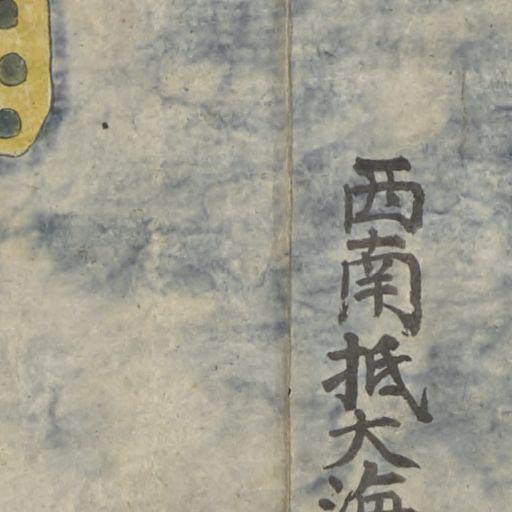 西南抵大海